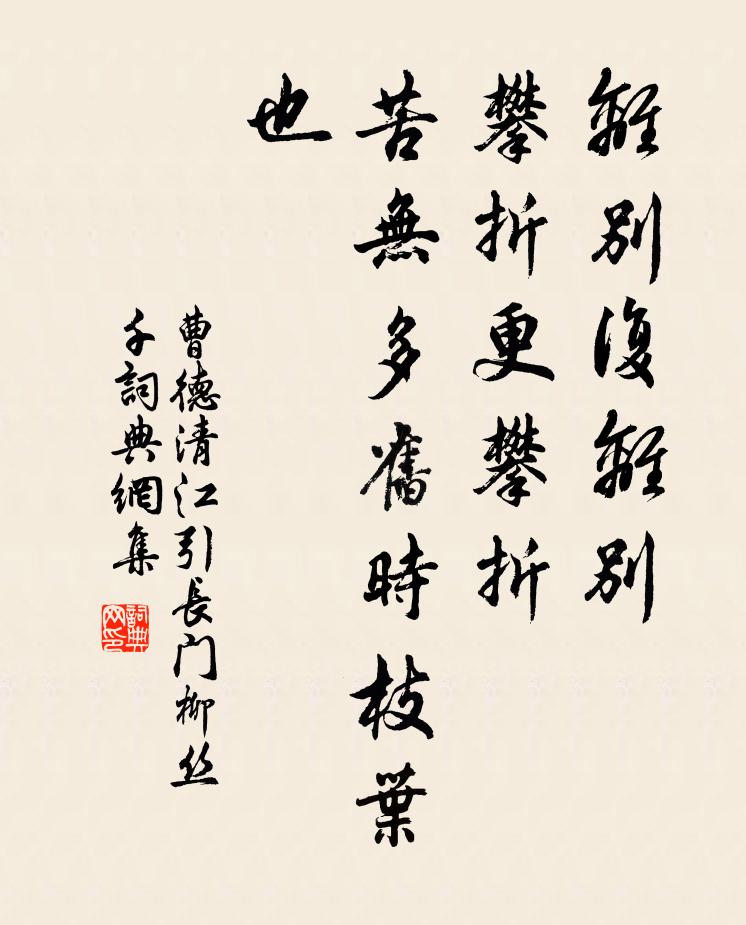 離別復離別
攀折更攀折
苦無多舊時枝葉
也
曹德清江引長门柳丝
千詞典網集
詞典
网印